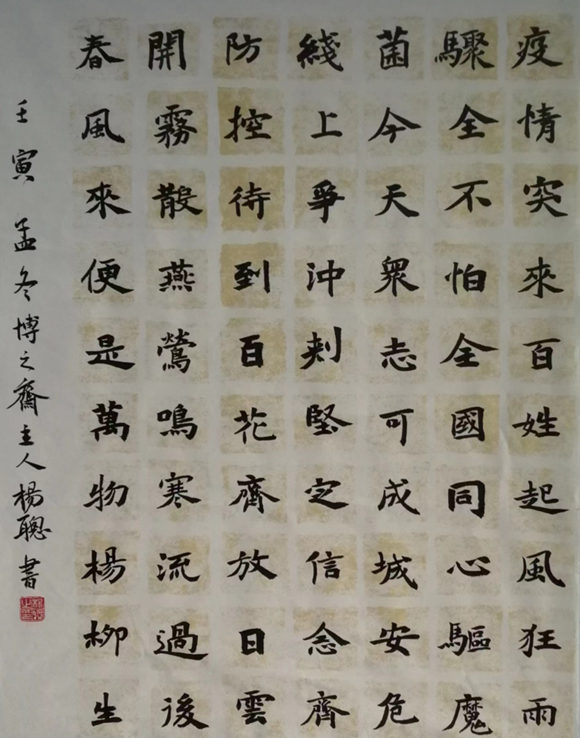 疫情突來百姓起風狂雨
驟全不怕全國同心驅魔
菌今天眾志可成城安危
綫上爭沖刺堅定信念齊
防控待到百花齊放日雲
開霧散燕鶯鳴寒流過後
春風來便是萬物楊柳生
壬寅孟冬博之齋主人楊聰書